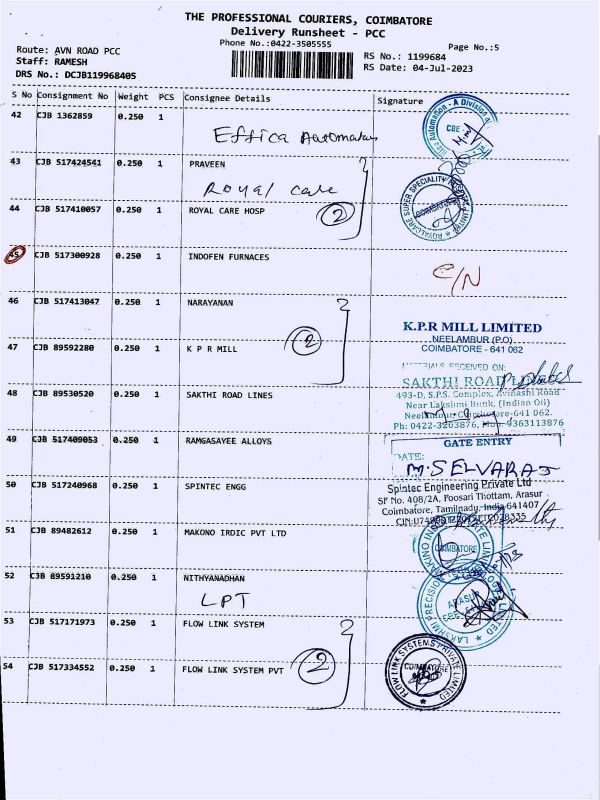 THE PROFESSIONAL COURIERS, COIMBATORE
Delivery Runsheet - PCC
Phone No.:0422-3505555
Page No.:5
Route: AVN ROAD PCC
Staff: RAMESH
DRS No.: DCJB119968405
RS No.: 1199684
RS Date: 04-Jul-2023
S No Consignment No Weight PCS Consignee Details Signature
42 CJB 1362859 0.250 1
Effica Automation
43 CJB 517424541 0.250 1 PRAVEEN
Royal care
44 CJB 517410057 0.250 1 ROYAL CARE HOSP 2
45 CJB 517300928 0.250 1 INDOFEN FURNACES
C/N
46 CJB 517413047 0.250 1 NARAYANAN
2
K.P.R MILL LIMITED
NEELAMBUR (P.O)
COIMBATORE - 641 062
47 CJB 89592280 0.250 1 K P R MILL
MATERIALS RECEIVED ON:
SAKTHI ROAD LINES
48 CJB 89530520 0.250 1 SAKTHI ROAD LINES
493-D, S.P.S. Complex, Avinashi Road
Near Lakshmi Bunk, (Indian Oil)
Neelambur, Coimbatore-641 062.
Ph: 0422-3203876, Mob: 9363113876
49 CJB 517409053 0.250 1 RAMGASAYEE ALLOYS
GATE ENTRY
DATE:
M.SELVARAJ
50 CJB 517240968 0.250 1 SPINTEC ENGG
Spintec Engineering Private Ltd
SF No. 408/2A, Poosari Thottam, Arasur
Coimbatore, Tamilnadu, India 641407
51 CJB 89482612 0.250 1 MAKONO IRDIC PVT LTD
COIMBATORE
52 CJB 89591210 0.250 1 NITHYANADHAN
LPT
ARASUR
53 CJB 517171973 0.250 1 FLOW LINK SYSTEM
54 CJB 517334552 0.250 1 FLOW LINK SYSTEM PVT 2
FLOW LINK SYSTEMS PRIVATE LIMITED
COIMBATORE